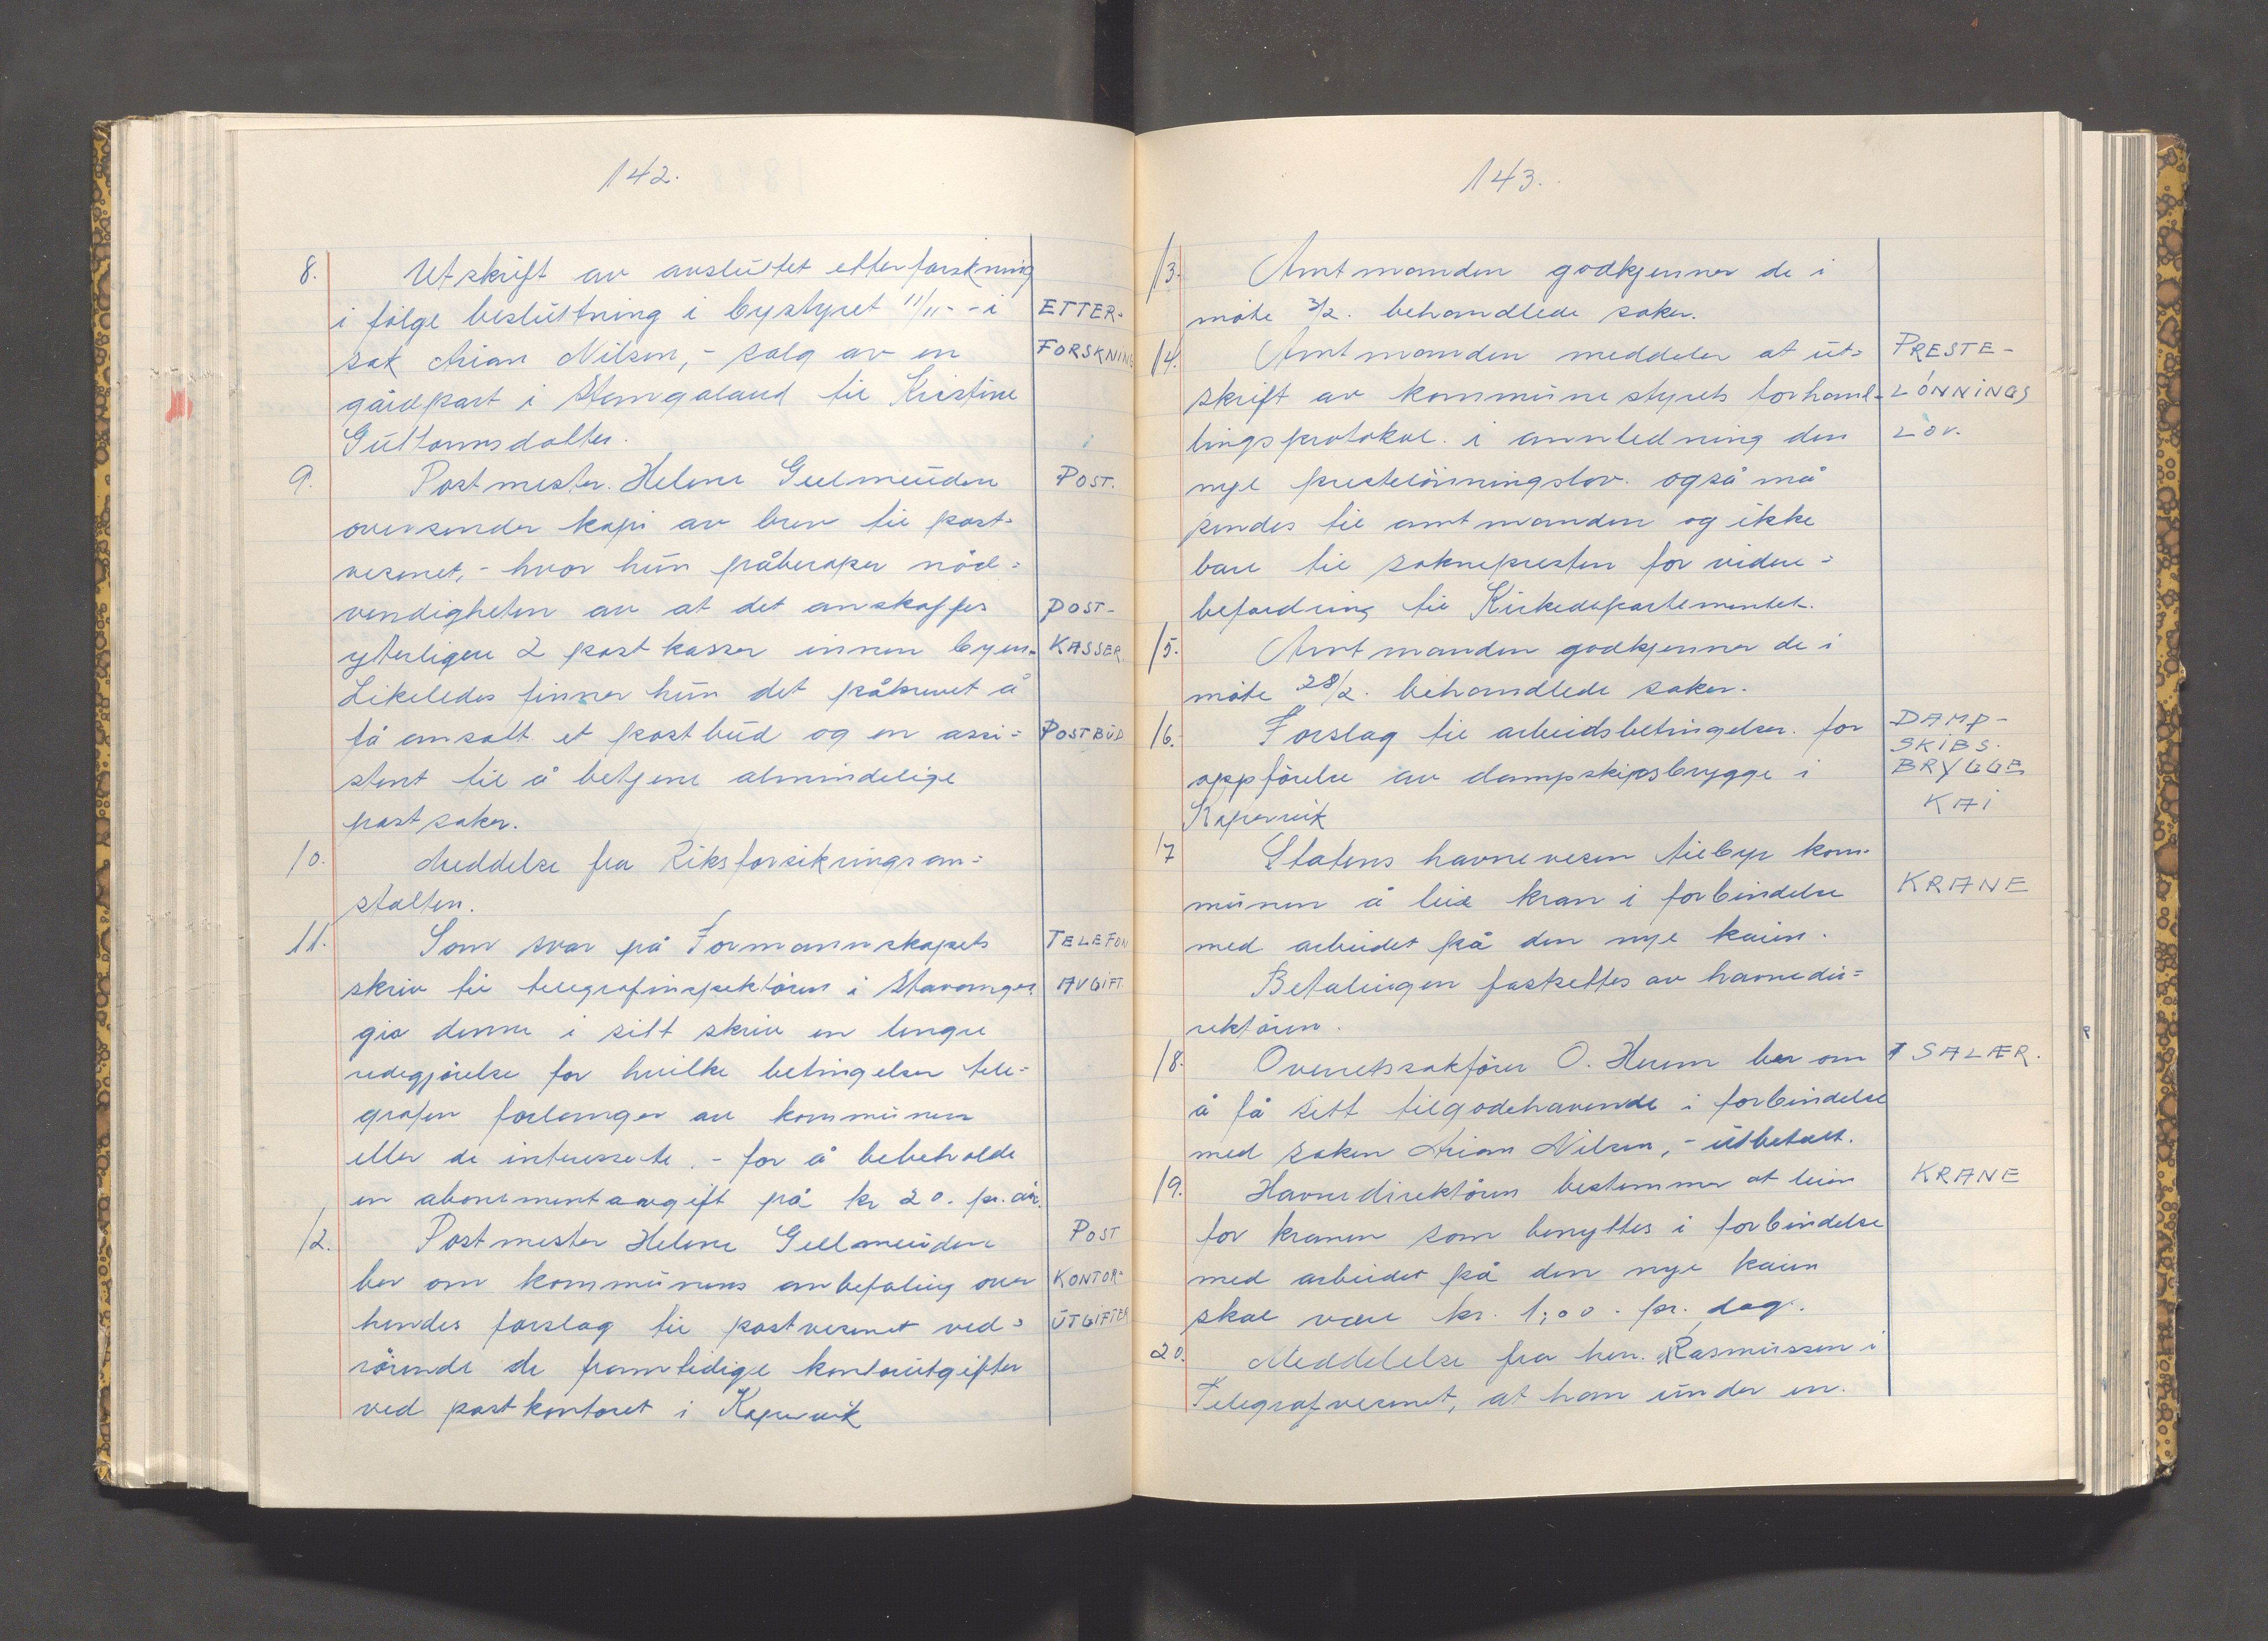 142.
8. Utskrift av avsluttet etterforskning
i følge beslutning i bystyret 11/11 - - i ETTER-
sak Arian Nilsen, - salg av en FORSKNING
gårdpart i Stangaland til Kristine
Guttormsdatter.
9. Postmester. Helene Geelmeuden POST.
oversender kopi av brev til post=
vesenet, - hvor hun påberoper nød=
vendigheten av at det anskaffes POST-
ytterligere 2 postkasser innen byen. KASSER.
Likeledes finner hun det påkrevet å
få ansatt et postbud og en assi= POSTBUD
stent til å betjene almindelige
postsaker.
10. Meddelse fra Riksforsikringsan=
stalten.
11. Som svar på Formannskapets TELEFON
skriv til telegrafinspektøren i Stavanger. AVGIFT.
gir denne i sitt skriv en lengre
redegjørelse for hvilke betingelser tele=
grafen forlanger av kommunen
eller de interesserte. - for å bebeholde
en abonementsavgift på kr 20. pr. år.
12. Postmester Helene Geelmeuden POST
ber om kommunens anbefaling over KONTOR=
hendes forslag til postvesenet ved= UTGIFTER
rørende de framtidige kontorutgifter
ved postkontoret i Kopervik
143.
13. Amtmanden godkjenner de i
møte 3/2. behandlede saker.
14. Amtmanden meddeler at ut= PRESTE-
skrift av kommunestyrets forhand- LØNNINGS
lingsprotokol. i annledning den LOV.
nye prestelønningslov. også må
sendes til amtmanden og ikke
bare til sognepresten for videre=
befordring til Kirkedepartementet.
15. Amtmanden godkjenner de i
møte 28/2. behandlede saker.
16. Forslag til arbeidsbetingelser. for DAMP-
oppførelse av dampskipsbrygge i SKIBS.
BRYGGE
Kopervik KAI
17 Statens havnevesen tilbyr kom-
munen å leie kran i forbindelse KRANE
med arbeidet på den nye kaien.
Betalingen fastsettes av havnedir=
rektøren.
18. Overretssakfører O. Herem ber om SALÆR.
å få sitt tilgodehavende i forbindelse
med saken Arian Nilsen, - utbetalt.
19. Havnedirektøren bestemmer at leien KRANE
for kranen som benyttes i forbindelse
med arbeidet på den nye kaien
skal være kr. 1;00. pr. dag.
20. Meddelelse fra hrr. Rasmussen i
Telegrafvesenet, at han under en.